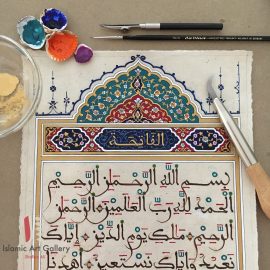 الفاتحة
بسم الله الرحمن الرحيم
الحمد لله رب العالمين الرحمن
الرحيم ملك يوم الدين إياك
نعبد وإياك نستعين اهدنا
Islamic Art Gallery